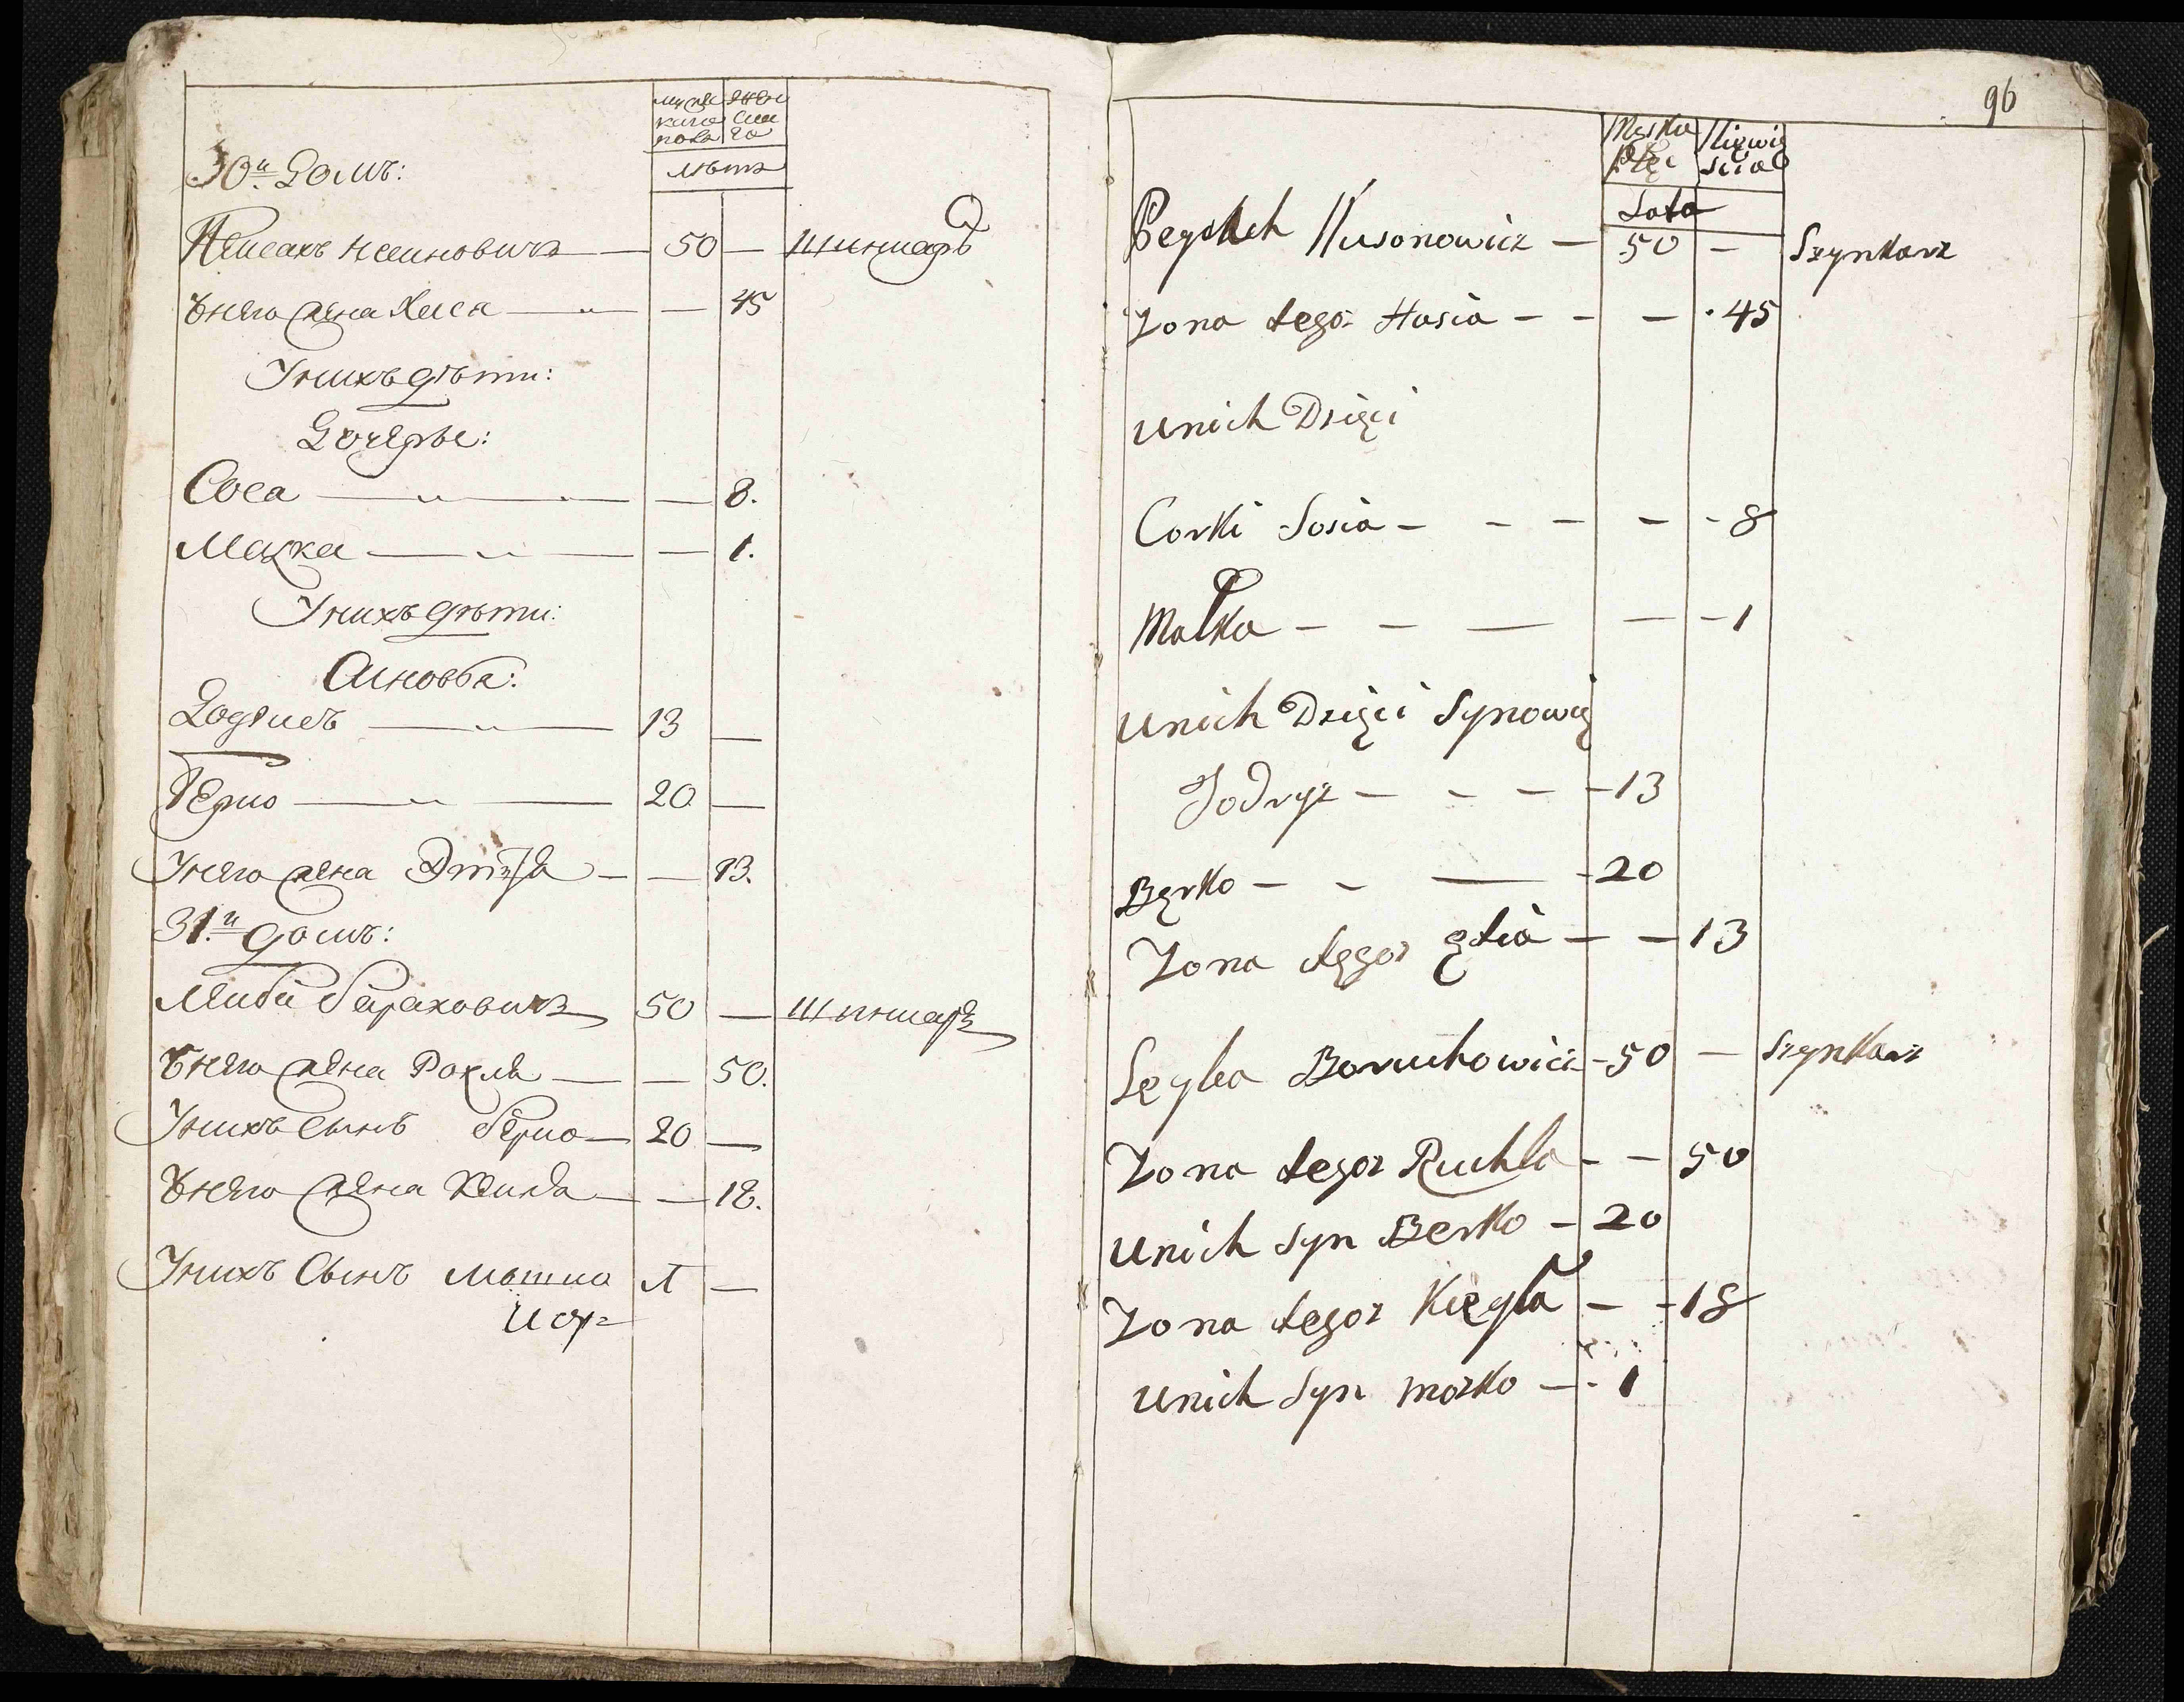 мужс жен
кого ска
пола го
лѣтъ
30й Домъ:
Пейсахъ Нсоновичъ — 50 — Шинкаръ
Ѣнего жена Хася — — 45
Унихъ дѣти:
Дочеръе:
Соса — — 8.
Малка — — 1.
Унихъ дѣти:
Сыновья:
Иодрисъ — 13 —
Берко — 20 —
Унего жена Этья — — 13.
31й домъ:
Лейба Бораховичъ 50 — Шинкаръ
Ѣнего жена Рохля — — 50.
Унихъ сынъ берко — 20 —
Ѣнего жена Кейля — — 18.
Унихъ Сынъ Мошко 1 —
96
Męska Niewie
płęć scia
Lata
Peysach Nusonowicz — 50 — Szynkarz
Zona tegoz Hasia - - — 45
unich Dzieci
Corki Sosia - - — — - 8
Małka - — — — - 1
unich Dzięci Synowie
Jodryz — - — - 13
Bęrko — - — - 20
Zona tęgoz ętia — — 13
Leyba Boruchowicz - 50 — Szynkarz
Zona tegoz Ruchla - — 50
unich syn Berko — 20
Zona tegoz Kieyla — - 18
unich Syn moszko — - 1